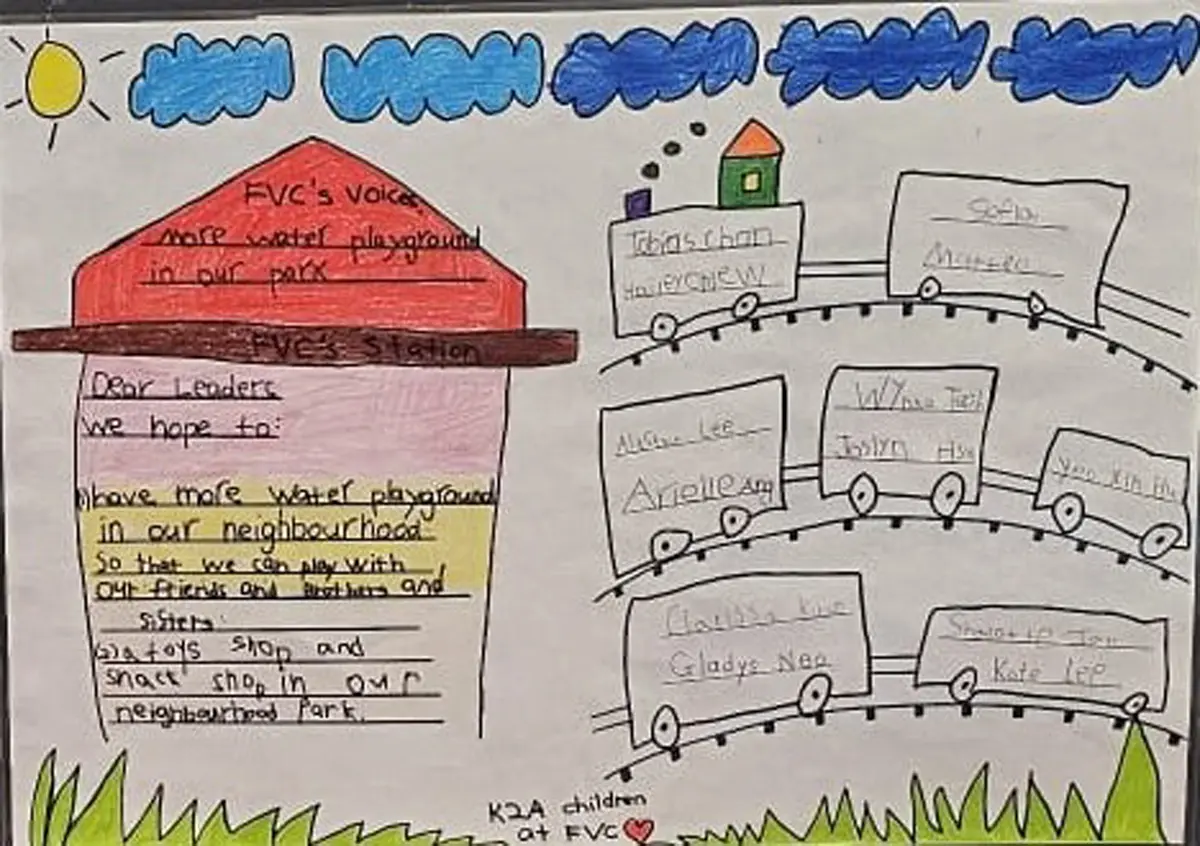 FVC's Voices
more water playground
in our park
FVC's Station
Dear Leaders
We hope to:
1) have more water playground
in our neighbourhood
So that we can play with
our friends and brothers and
sisters.
(2) a toys shop and
snack shop in our
neighbourhood Park.
Tobias chan
Sofia
Matteo
Lee
Arielle Ang
Joslyn Hsu
Yuu Xin
Clarissa
Gladys Neo
Kate Lee
K2A children
at FVC